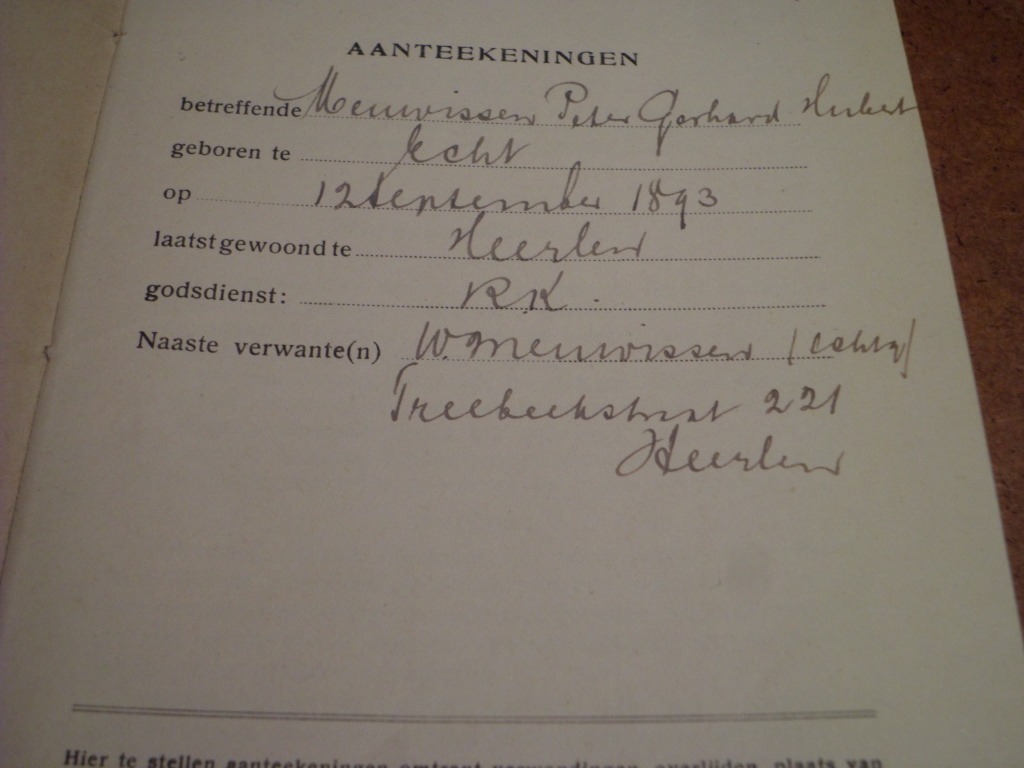 AANTEEKENINGEN
betreffende Meuwissen Peter Gerhard Hubert
geboren te Echt
op 12 September 1893
laatst gewoond te Heerlen
godsdienst: RK.
Naaste verwante(n) W. Meuwissen (echtg)
Treebeekstraat 221
Heerlen
Hier te stellen aanteekeningen omtrent verwondingen, overlijden, plaats van